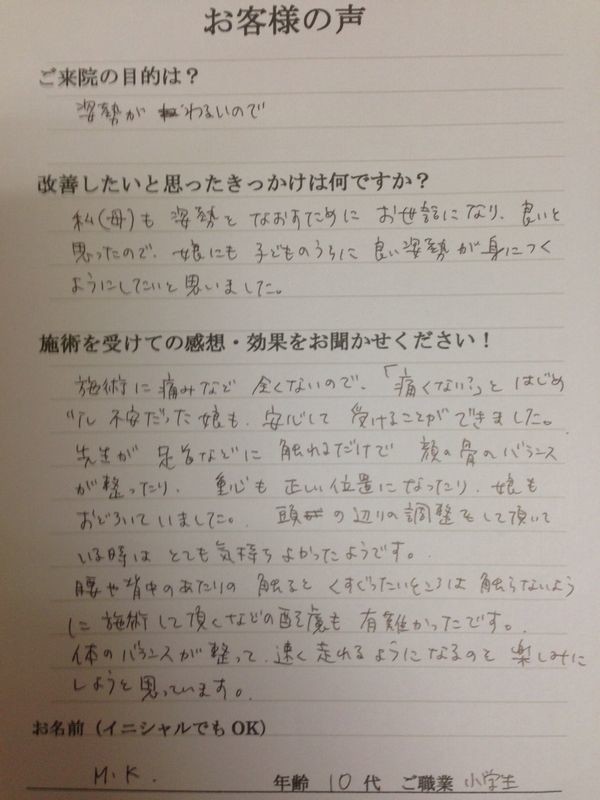 お客様の声
ご来院の目的は？
姿勢が わるいので
改善したいと思ったきっかけは何ですか？
私(母)も 姿勢を なおすために お世話になり、良いと
思ったので、娘にも 子どものうちに 良い姿勢が身につく
ようにしたいと思いました。
施術を受けての感想・効果をお聞かせください！
施術に痛みなど 全くないので、「痛くない?」と はじめ
不安だった娘も、安心して 受けることができました。
先生が 足首などに 触れるだけで 顔の骨のバランス
が整ったり、重心も 正しい位置になったり、娘も
おどろいていました。頭の辺りの調整をして頂いて
いる時は とても気持ちよかったようです。
腰や背中のあたりの 触ると くすぐったいところは 触らないよう
に 施術して頂くなどの配慮も 有難かったです。
体のバランスが整って、速く走れるようになるのを 楽しみに
しようと思っています。
お名前（イニシャルでも OK）
M.K. 年齢 10 代 ご職業 小学生